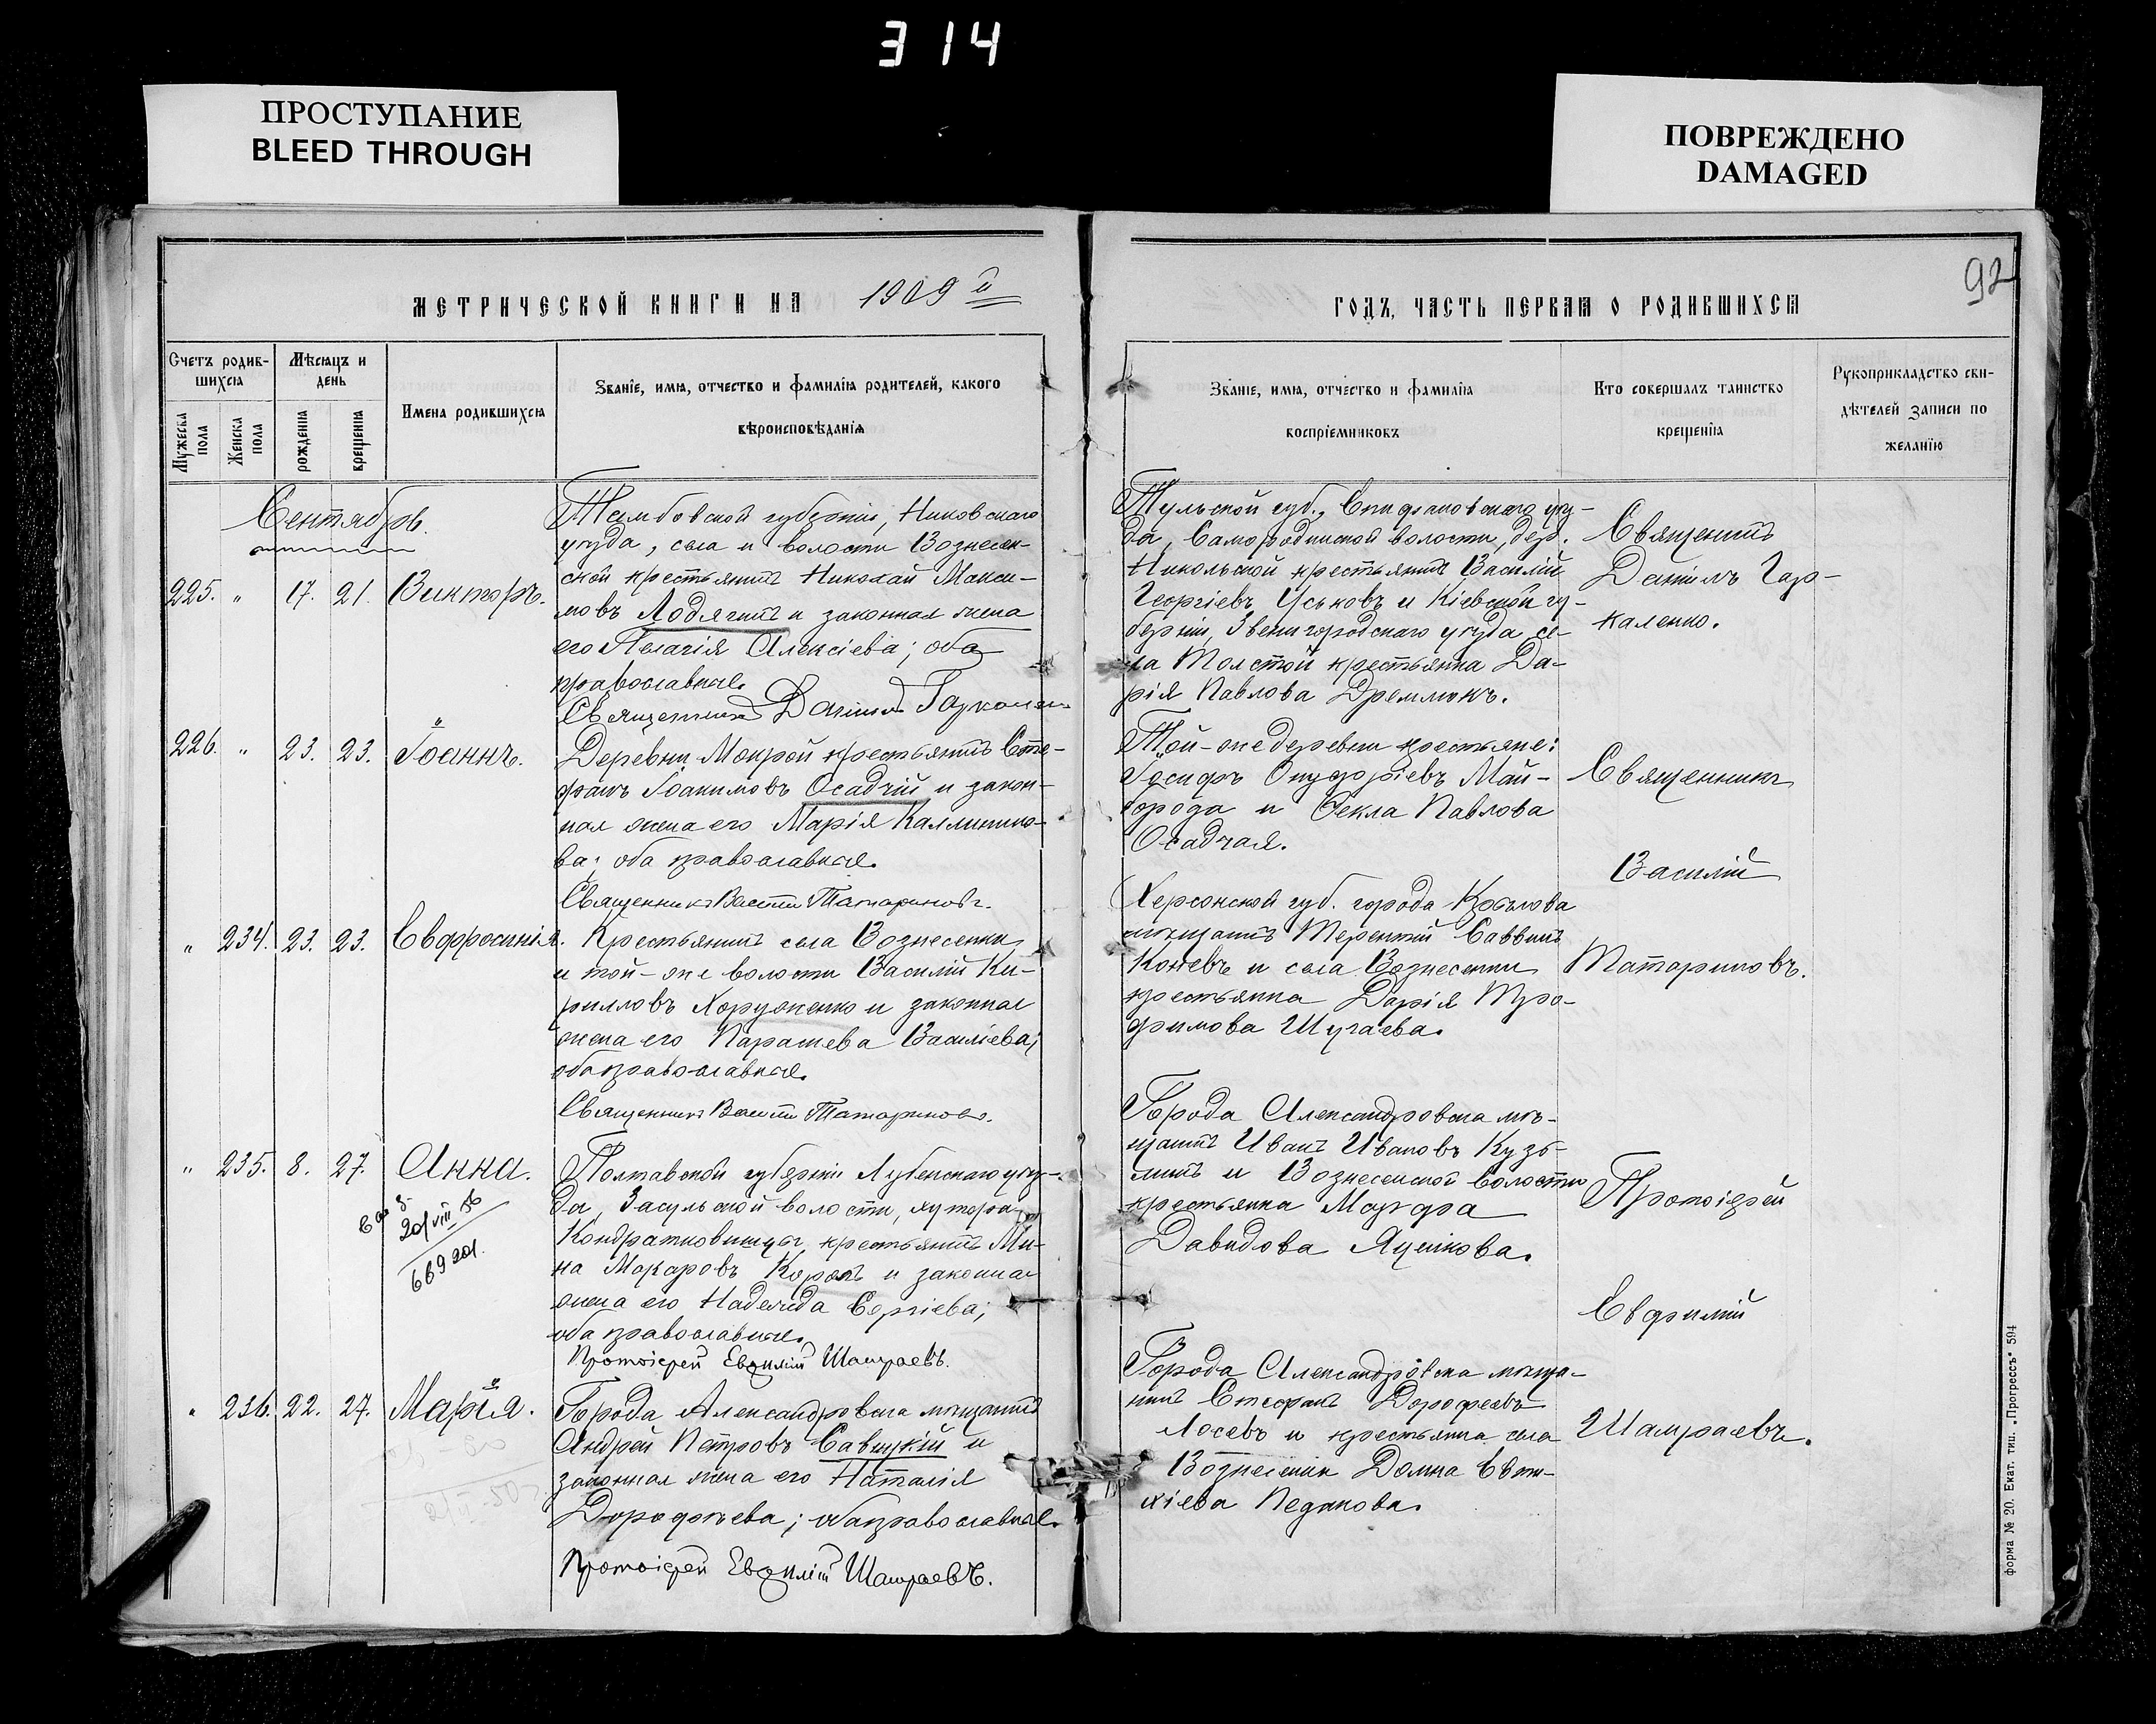 314
ПРОСТУПАНИЕ
BLEED THROUGH
ПОВРЕЖДЕНО
DAMAGED
92
МЕТРИЧЕСКОЙ КНИГИ НА 1909 й
ГОДЪ, ЧАСТЬ ПЕРВАЯ О РОДИВШИХСЯ
Счетъ родив-
шихся
Мужеска пола
Женска пола
Мѣсяцъ и
день
рожденія
крещенія
Имена родившихся
Званіе, имя, отчество и фамилія родителей, какого
вѣроисповѣданія
Званіе, имя, отчество и фамилія
воспріемниковъ
Кто совершалъ таинство
крещенія
Рукоприкладство сви-
дѣтелей записи по
желанію
Сентябрь.
225. " 17. 21. Викторъ.
Тамбовской губерніи,
уѣзда, села и волости Вознесен-
ской крестьянинъ Николай Макси-
мовъ Лодягинъ и законная жена
его Пелагія Алексіева; оба
православные.
Священникъ Даніилъ Гаркаленко
Тульской губ., Епифановскаго уѣз-
да, Самородинской волости, дер.
Никольской крестьянинъ Василій
Георгіевъ Уськовъ и Кіевской гу-
берніи, Звенигородскаго уѣзда, се-
ла Толстой крестьянка Да-
рія Павлова Дремлюкъ.
Священникъ
Даніилъ Гар-
каленко.
226. " 23. 23. Іоаннъ.
Деревни Мокрой крестьянинъ Сте-
фанъ Іоакимовъ Осадчій и закон-
ная жена его Марія Каллинико-
ва; оба православные.
Священникъ Василій Татариновъ.
Той-же деревни крестьяне:
Іосифъ Онуфріевъ Май-
борода и Ѳекла Павлова
Осадчая.
Священникъ
Василій
Татариновъ.
" 234. 23. 23. Евфросинія.
Крестьянинъ села Вознесенки
и той-же волости Василій Ки-
рилловъ Хоруженко и законная
жена его Параскева Василіева;
оба православные.
Священникъ Василій Татариновъ.
Херсонской губ. города
мѣщанинъ Терентій Саввинъ
Коневъ и села Вознесенки
крестьянка Дарія Тро-
фимова Шугаева.
" 235. 8. 27. Анна.
20/VIII 56
669201.
Полтавской губерніи Лубенскаго уѣз-
да, Засульской волости, хутора
крестьянинъ Ми-
на Макаровъ Король и законная
жена его Надежда Сергіева;
оба православные.
Протоіерей Евфимій Шамраевъ.
Города Александровска мѣ-
щанинъ Иванъ Ивановъ Кузь-
минъ и Вознесенской волости
крестьянка Марфа
Давидова Яценкова.
Протоіерей
Евфимій
Шамраевъ.
" 236. 22. 27. Марія.
Города Александровска мѣщанинъ
Андрей Петровъ Савицкій и
законная жена его Наталія
Дорофеева; оба православные.
Протоіерей Евфимій Шамраевъ.
Города Александровска мѣща-
нинъ Стефанъ Дорофеевъ
Лосевъ и крестьянка села
Вознесенки Домна Евти-
хіева
Форма № 20. Екат. тип. „Прогрессъ" 594